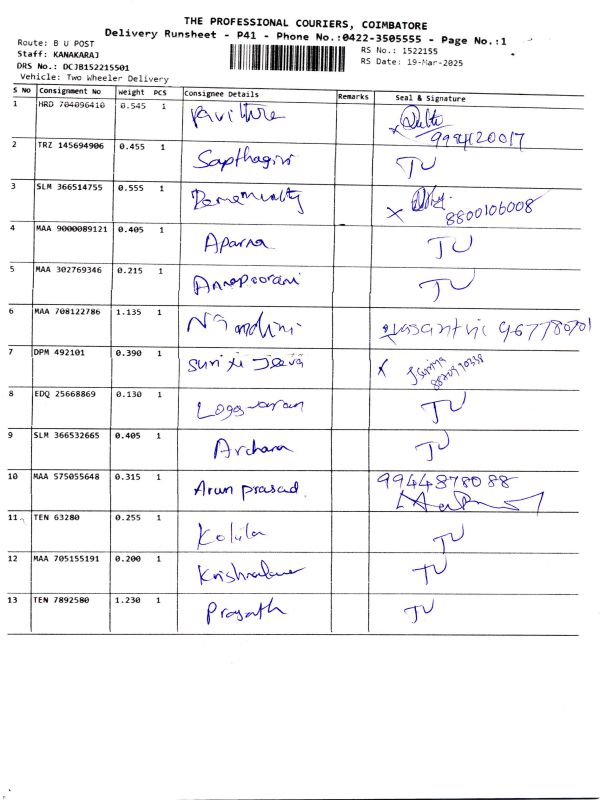 THE PROFESSIONAL COURIERS, COIMBATORE
Delivery Runsheet - P41 - Phone No.:0422-3505555 - Page No.:1
Route: B U POST
Staff: KANAKARAJ
DRS No.: DCJB152215501
Vehicle: Two Wheeler Delivery
RS No.: 1522155
RS Date: 19-Mar-2025
S No Consignment No Weight PCS Consignee Details Remarks Seal & Signature
1 HRD 704096410 0.545 1 9994120017
2 TRZ 145694906 0.455 1 Sapthagiri TU
3 SLM 366514755 0.555 1 X 8800106008
4 MAA 9000089121 0.405 1 Aparna TU
5 MAA 302769346 0.215 1 Annapoorani TU
6 MAA 708122786 1.135 1 Nandini
7 DPM 492101 0.390 1 X
8 EDQ 25668869 0.130 1 TU
9 SLM 366532665 0.405 1 Archana TU
10 MAA 575055648 0.315 1 Arun prasad. 9944878088
11 TEN 63280 0.255 1 TU
12 MAA 705155191 0.200 1 TU
13 TEN 7892580 1.230 1 TU